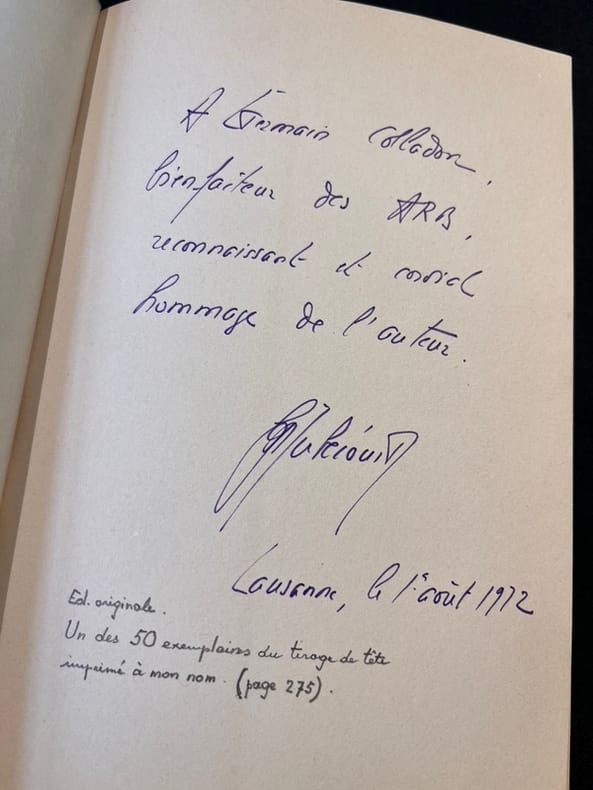 A Germain Colladon,
bienfaiteur des ARB,
reconnaissant et cordial
hommage de l'auteur.
Lausanne, le 1er août 1972
Ed. originale.
Un des 50 exemplaires du tirage de tête
imprimé à mon nom. (page 275).